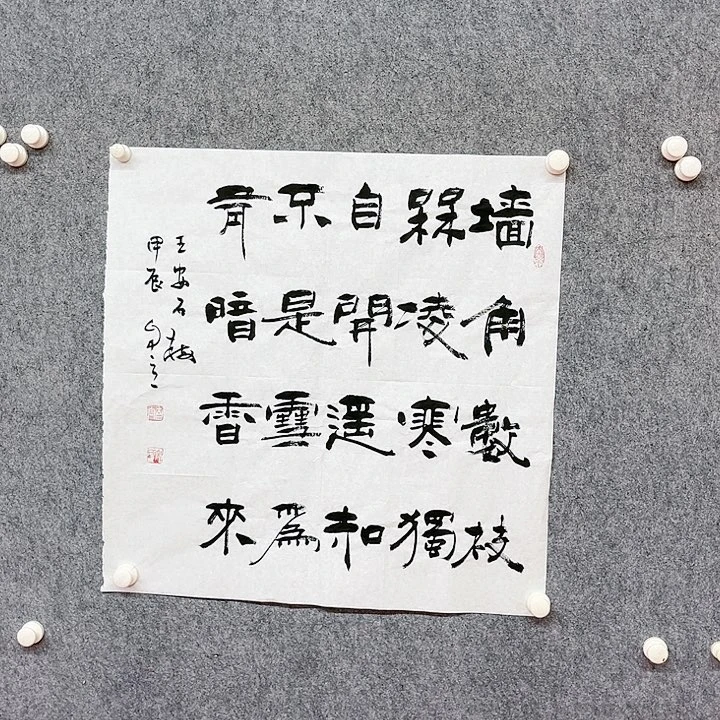 墙角數枝
槑凌寒獨
自開遥知
不是雪爲
有暗香來
王安石梅
甲辰